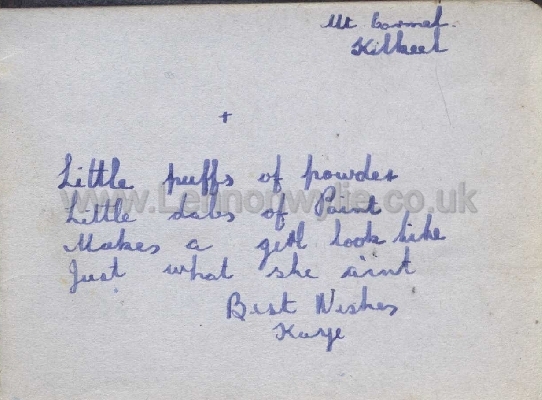 Mt Carmel.
Kilkeel
+
Little puffs of powder
Little dabs of Paint
Makes a girl look like
Just what she ain't
Best Wishes
Kaye
www.Lennonwylie.co.uk